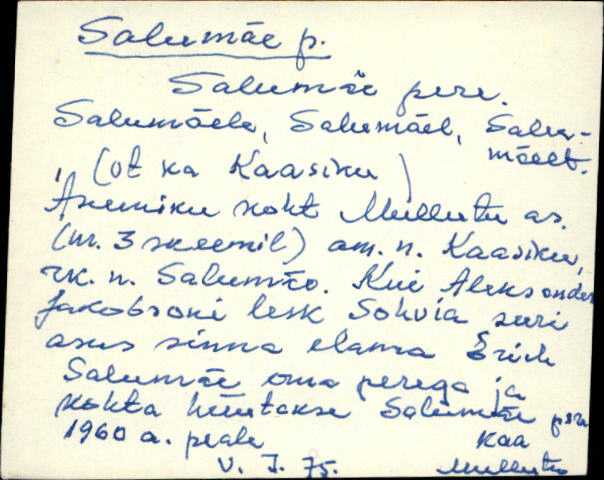 Salumäe p.
Salumäe pere.
Salumäele, Salumäel, Salu-
mäelt.
(vt ka Kaasiku)
Asumiku koht Mullutu as.
(nr. 3 skeemil) am. n. Kaasiku,
rk. n. Salumäe. Kui Aleksander
Jakobsoni lesk Sohvia suri
asus sinna elama Erich
Salumäe oma perega ja
kohta hüütakse Salumäe pere
1960 a. peale
Kaa
V. J. 75.
Mullutu